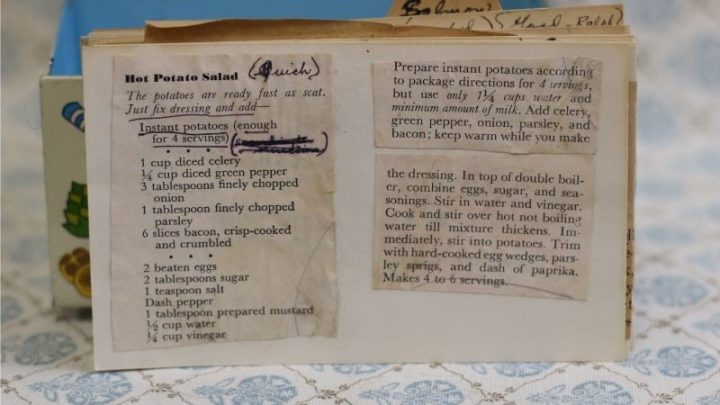 Hot Potato Salad (Quick)
The potatoes are ready fast as scat.
Just fix dressing and add—
Instant potatoes (enough
for 4 servings)
• • •
1 cup diced celery
¼ cup diced green pepper
3 tablespoons finely chopped
onion
1 tablespoon finely chopped
parsley
6 slices bacon, crisp-cooked
and crumbled
• • •
2 beaten eggs
2 tablespoons sugar
1 teaspoon salt
Dash pepper
1 tablespoon prepared mustard
½ cup water
¼ cup vinegar
Prepare instant potatoes according
to package directions for 4 servings,
but use only 1¼ cups water and
minimum amount of milk. Add celery,
green pepper, onion, parsley, and
bacon; keep warm while you make
the dressing. In top of double boil-
er, combine eggs, sugar, and sea-
sonings. Stir in water and vinegar.
Cook and stir over hot not boiling
water till mixture thickens. Im-
mediately, stir into potatoes. Trim
with hard-cooked egg wedges, pars-
ley sprigs, and dash of paprika.
Makes 4 to 6 servings.